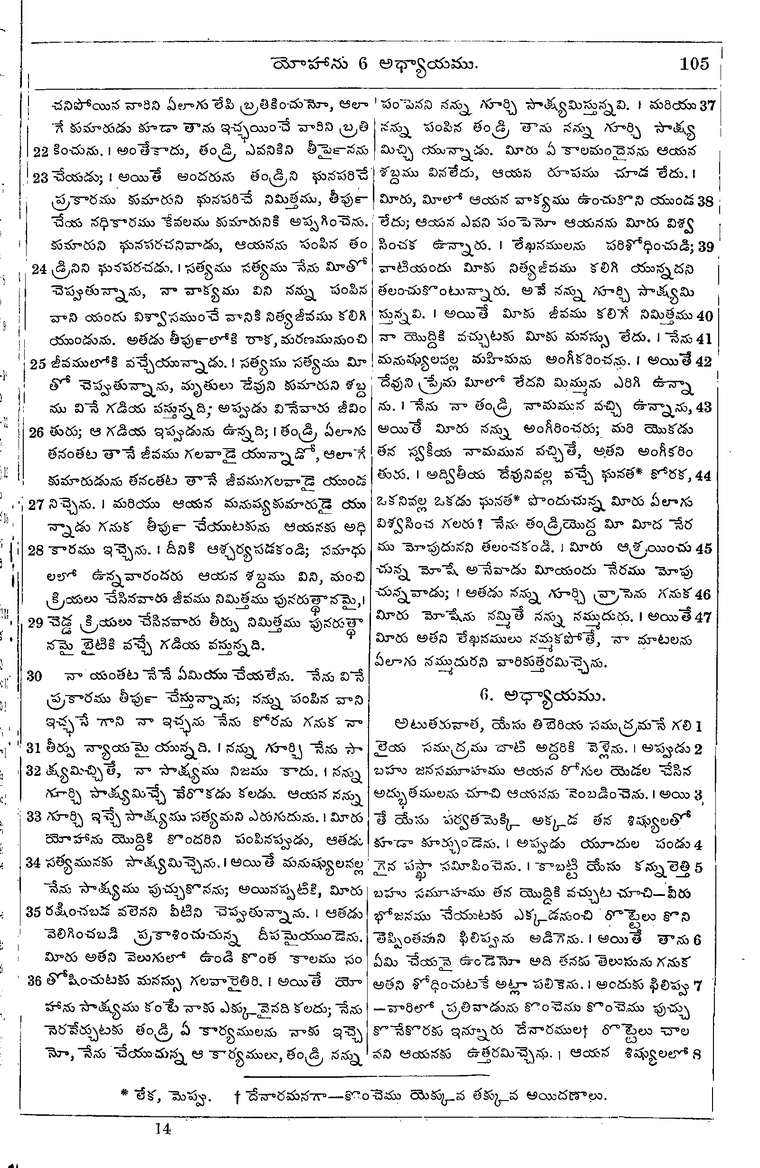 యోహాను 6 అధ్యాయము. 105
చనిపోయిన వారిని ఏలాగు లేపి బ్రతికించునో, ఆలా
గే కుమారుడు కూడా తాను ఇచ్ఛయించే వారిని బ్రతి
22 కించును. । అంతేకాదు, తండ్రి ఎవనికిని తీర్పైనను
23 చేయడు; । అయితే అందరును తండ్రిని ఘనపరిచే
ప్రకారము కుమారుని ఘనపరిచే నిమిత్తము, తీర్పు
చేయ నధికారము కేవలము కుమారునికి అప్పగించెను.
కుమారుని ఘనపరచనివాడు, ఆయనను పంపిన తం
24 డ్రినిని ఘనపరచడు. । సత్యము సత్యము నేను మీతో
చెప్పుతున్నాను, నా వాక్యము విని నన్ను పంపిన
వాని యందు విశ్వాసముంచే వానికి నిత్యజీవము కలిగి
యుండును. అతడు తీర్పులోకి రాక, మరణమునుంచి
25 జీవములోకి వచ్చేయున్నాడు. । సత్యము సత్యము మీ
తో చెప్పుతున్నాను, మృతులు దేవుని కుమారుని శబ్ద
ము వినే గడియ వస్తున్నది; అప్పుడు వినేవారు జీవిం
26 తురు; ఆ గడియ ఇప్పుడును ఉన్నది; । తండ్రి ఏలాగు
తనంతట తానే జీవము గలవాడై యున్నాడో, ఆలాగే
కుమారుడును తనంతట తానే జీవముగలవాడై యుండ
27 నిచ్చెను. । మరియు ఆయన మనుష్యకుమారుడై యు
న్నాడు గనుక తీర్పు చేయుటకును ఆయనకు అధి
28 కారము ఇచ్చెను. । దీనికి ఆశ్చర్యపడకండి; సమాధు
లలో ఉన్నవారందరు ఆయన శబ్దము విని, మంచి
క్రియలు చేసినవారు జీవము నిమిత్తము పునరుత్థానమై, ।
29 చెడ్డ క్రియలు చేసినవారు తీర్పు నిమిత్తము పునరుత్థా
నమై బైటికి వచ్చే గడియ వస్తున్నది.
30 నా యంతట నేనే ఏమియు చేయలేను. నేను వినే
ప్రకారము తీర్పు చేస్తున్నాను; నన్ను పంపిన వాని
ఇచ్ఛనే గాని నా ఇచ్ఛను నేను కోరను గనుక నా
31 తీర్పు న్యాయమై యున్నది. । నన్ను గూర్చి నేను సా
32 క్ష్యమిచ్చితే, నా సాక్ష్యము నిజము కాదు. । నన్ను
గూర్చి సాక్ష్యమిచ్చే వేరొకడు కలడు. ఆయన నన్ను
33 గూర్చి ఇచ్చే సాక్ష్యము సత్యమని ఎరుగుదును. । మీరు
యోహాను యొద్దికి కొందరిని పంపినప్పుడు, ఆతడు
34 సత్యమునకు సాక్ష్యమిచ్చెను. । అయితే మనుష్యులవల్ల
నేను సాక్ష్యము పుచ్చుకొనను; అయినప్పటికి, మీరు
35 రక్షించబడ వలెనని వీటిని చెప్పుతున్నాను. । ఆతడు
వెలిగించబడి ప్రకాశించుచున్న దీపమైయుండెను.
మీరు అతని వెలుగులో ఉండి కొంత కాలము సం
36 తోషించుటకు మనస్సు గలవారైతిరి. । అయితే యో
హాను సాక్ష్యము కంటే నాకు ఎక్కువైనది కలదు; నేను
నెరవేర్చుటకు తండ్రి ఏ కార్యములను నాకు ఇచ్చె
నో, నేను చేయుచున్న ఆ కార్యములు, తండ్రి నన్ను
పంపెనని నన్ను గూర్చి సాక్ష్యమిస్తున్నవి. । మరియు 37
నన్ను పంపిన తండ్రి తాను నన్ను గూర్చి సాక్ష్య
మిచ్చి యున్నాడు. మీరు ఏ కాలమందైనను ఆయన
శబ్దము వినలేదు, ఆయన రూపము చూడ లేదు. ।
మీరు, మీలో ఆయన వాక్యము ఉంచుకొని యుండ 38
లేదు; ఆయన ఎవని పంపెనో ఆయనను మీరు విశ్వ
సించక ఉన్నారు. । లేఖనములను పరిశోధించుడి; 39
వాటియందు మీకు నిత్యజీవము కలిగి యున్నదని
తలంచుకొంటున్నారు. అవే నన్ను గూర్చి సాక్ష్యమి
స్తున్నవి. । అయితే మీకు జీవము కలిగే నిమిత్తము 40
నా యొద్దికి వచ్చుటకు మీకు మనస్సు లేదు. । నేను 41
మనుష్యులవల్ల మహిమను అంగీకరించను. । అయితే 42
దేవుని ప్రేమ మీలో లేదని మిమ్మును ఎరిగి ఉన్నా
ను. । నేను నా తండ్రి నామమున వచ్చి ఉన్నాను, 43
అయితే మీరు నన్ను అంగీకరించరు; మరి యొకడు
తన స్వకీయ నామమున వచ్చితే, అతని అంగీకరిం
తురు. । అద్వితీయ దేవునివల్ల వచ్చే ఘనత* కోరక, 44
ఒకనివల్ల ఒకడు ఘనత* పొందుచున్న మీరు ఏలాగు
విశ్వసించ గలరు? నేను తండ్రియొద్ద మీ మీద నేర
ము మోపుదునని తలంచకండి. । మీరు ఆశ్రయించు 45
చున్న మోషే అనేవాడు మీయందు నేరము మోపు
చున్నవాడు; । అతడు నన్ను గూర్చి వ్రాసెను గనుక 46
మీరు మోషేను నమ్మితే నన్ను నమ్ముదురు. । అయితే 47
మీరు అతని లేఖనములు నమ్మకపోతే, నా మాటలను
ఏలాగు నమ్ముదురని వారికుత్తరమిచ్చెను.
6. అధ్యాయము.
అటుతరువాత, యేసు తిబెరియ సముద్రమనే గలి 1
లైయ సముద్రము దాటి అద్దరికి వెళ్లెను. । అప్పుడు 2
బహు జనసమూహము ఆయన రోగుల యెడల చేసిన
అద్భుతములను చూచి ఆయనను వెంబడించెను. । అయి 3
తే యేసు పర్వతమెక్కి అక్కడ తన శిష్యులతో
కూడా కూర్చుండెను. । అప్పుడు యూదుల పండు 4
గైన పస్ఖా సమీపించెను. । కాబట్టి యేసు కన్నులెత్తి 5
బహు సమూహము తన యొద్దికి వచ్చుట చూచి—వీరు
భోజనము చేయుటకు ఎక్కడనుంచి రొట్టెలు కొని
తెప్పింతమని ఫిలిప్పను అడిగెను. । అయితే తాను 6
ఏమి చేయనై ఉండెనో అది తనకు తెలుసును గనుక
అతని శోధించుటకే అట్లా పలికెను. । అందుకు ఫిలిప్పు 7
—వారిలో ప్రతివాడును కొంచెము కొంచెము పుచ్చు
కొనేకొరకు ఇన్నూరు దేనారముల† రొట్టెలు చాల
వని ఆయనకు ఉత్తరమిచ్చెను. । ఆయన శిష్యులలో 8
* లేక, మెప్పు. † దేనారమనగా—కొంచెము యెక్కువ తక్కువ అయిదణాలు.
14